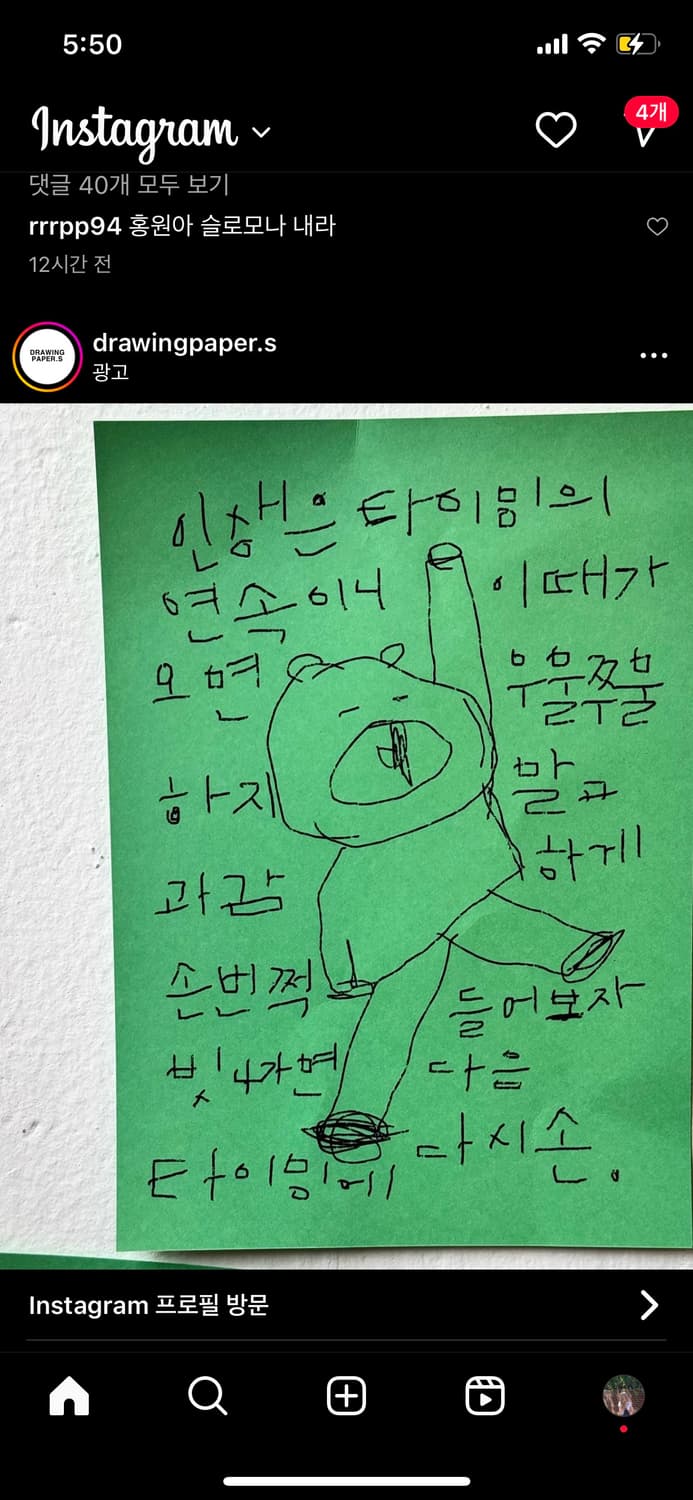 5:50
Instagram
4개
댓글 40개 모두 보기
rrrpp94 홍원아 슬로모나 내라
12시간 전
DRAWING
PAPER.S
drawingpaper.s
광고
인생은 타이밍의
연속이니 이때가
오면 우물쭈물
하지 말고
과감하게
손번쩍 들어보자
빗나가면 다음
타이밍에 다시손.
Instagram 프로필 방문